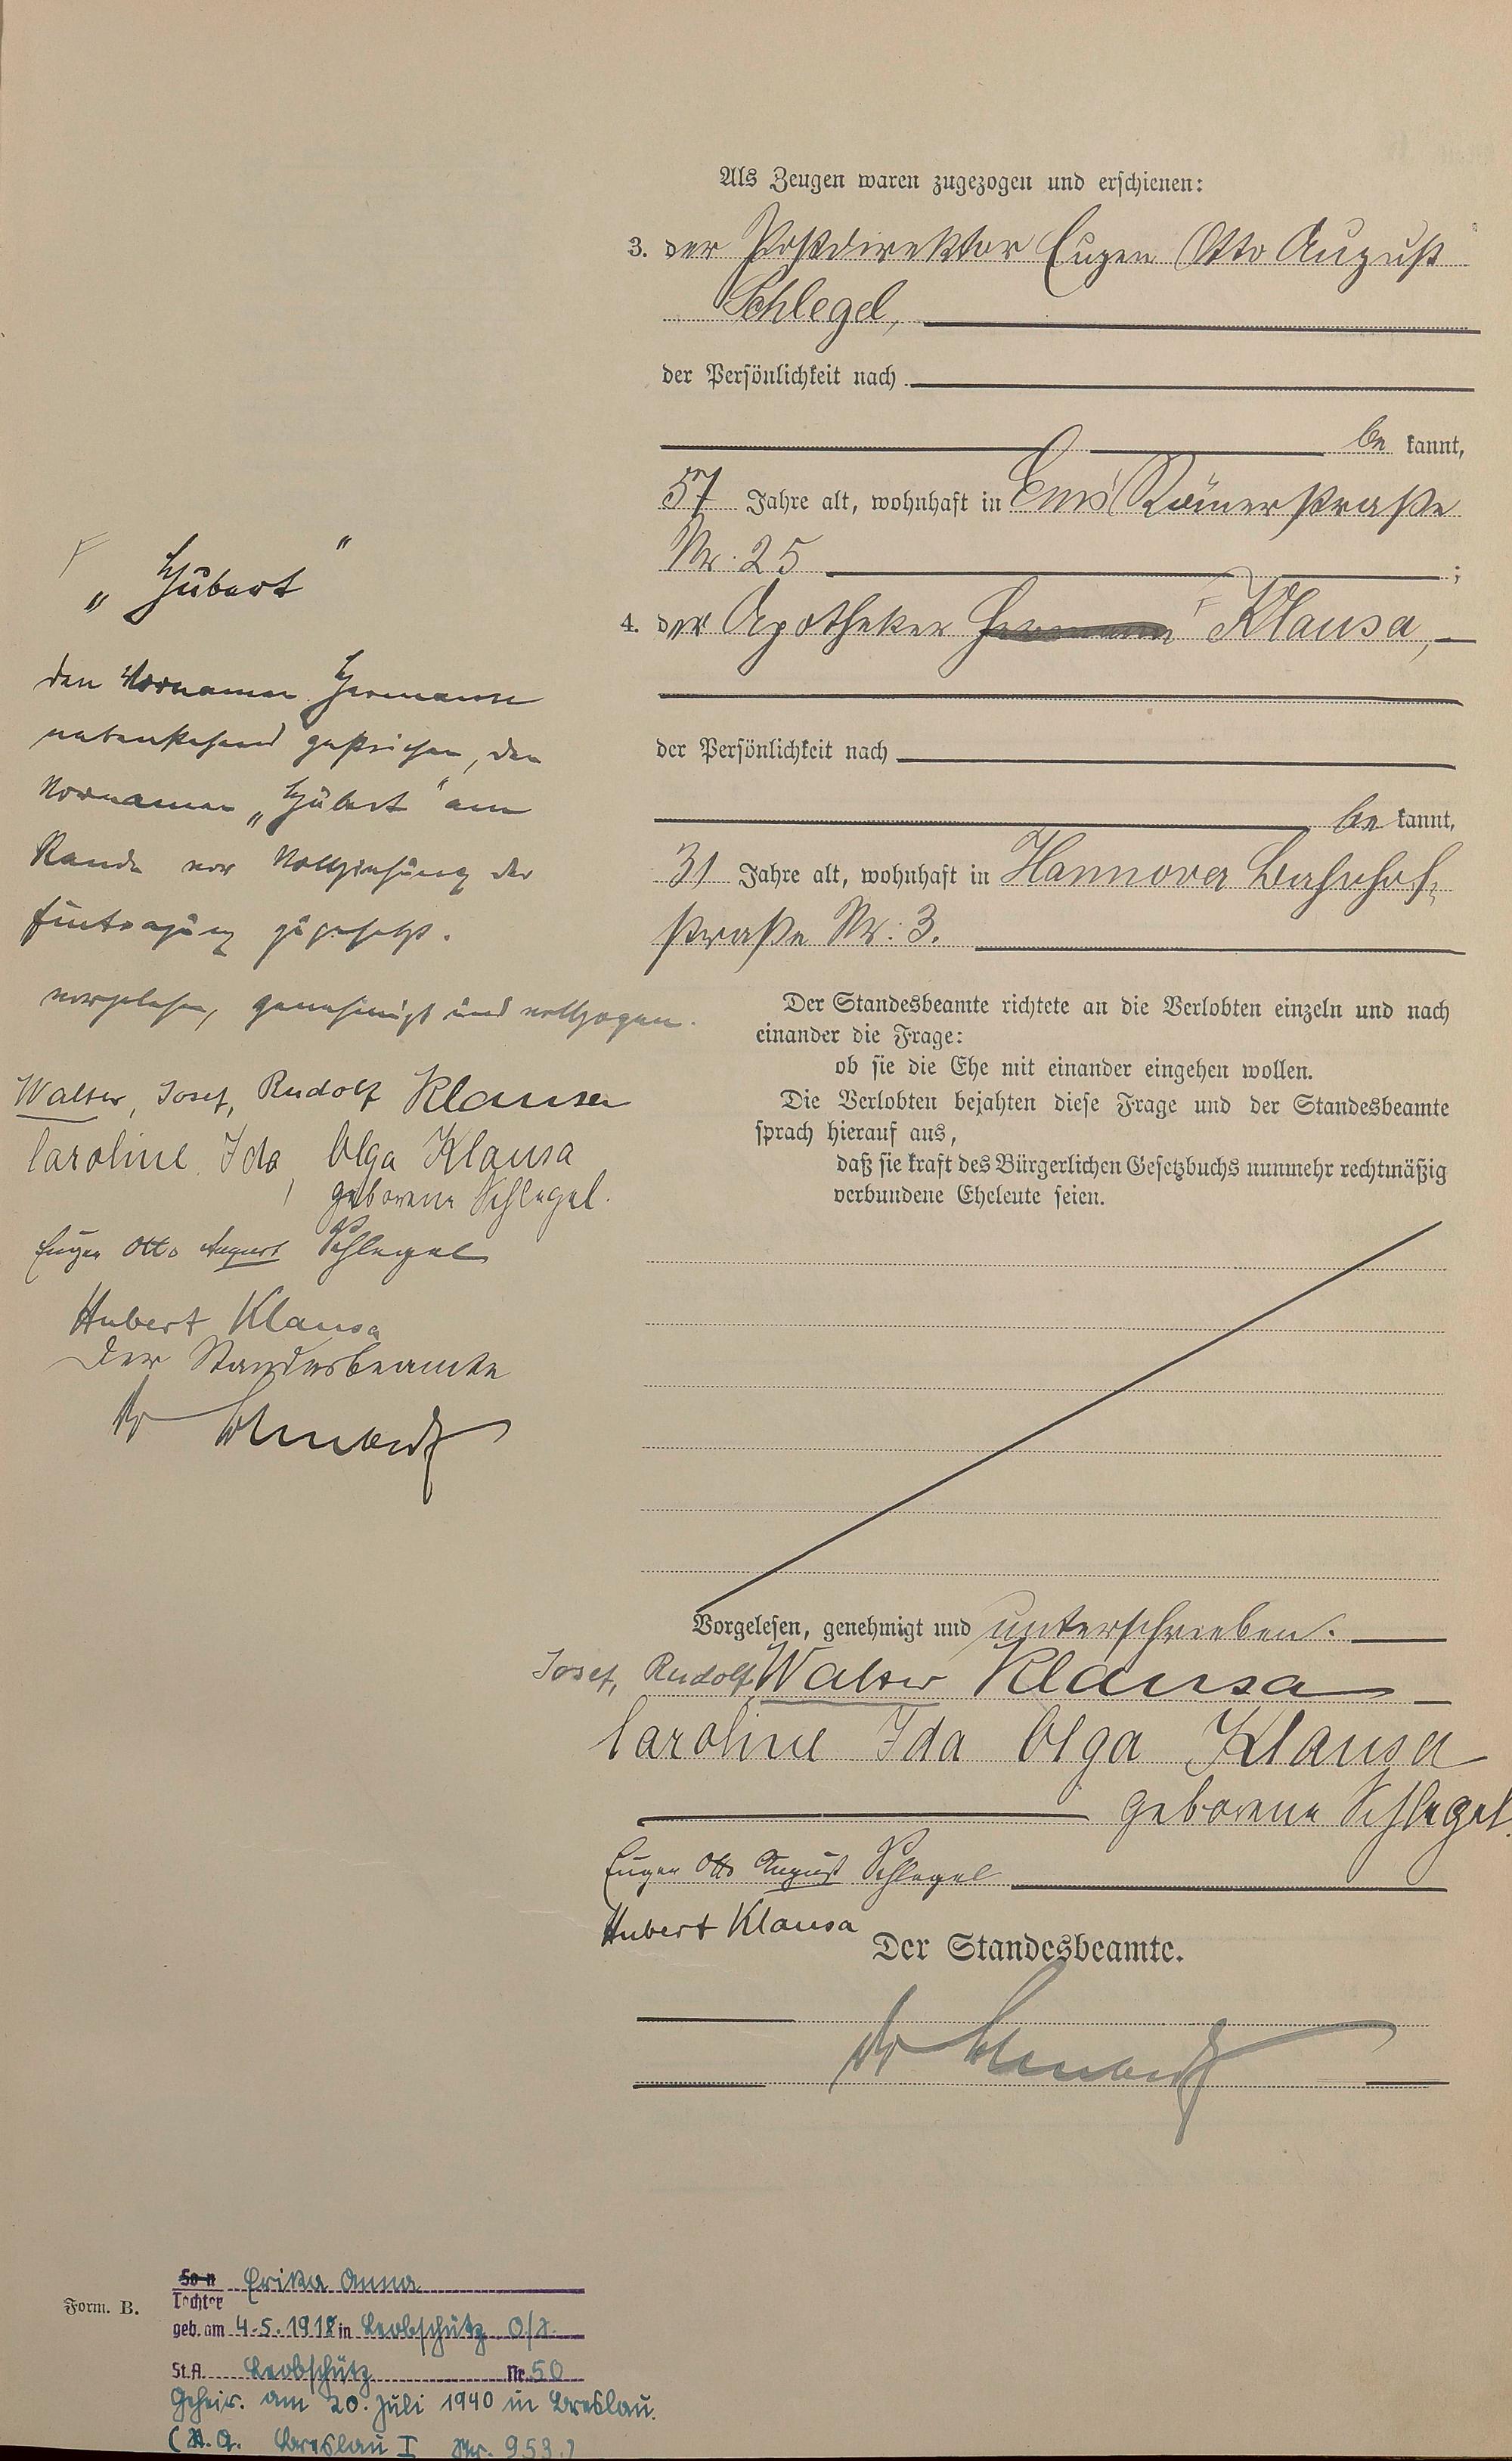 Als Zeugen waren zugezogen und erschienen:
3. der Postdirektor Eugen Otto August
Schlegel,
der Persönlichkeit nach
be kannt,
57 Jahre alt, wohnhaft in Ems Römerstraße
Nr. 25 ;
4. der Apotheker Hermann Klausa,
der Persönlichkeit nach
be kannt,
31 Jahre alt, wohnhaft in Hannover Bahnhof-
straße Nr. 3.
Der Standesbeamte richtete an die Verlobten einzeln und nach
einander die Frage:
ob sie die Ehe mit einander eingehen wollen.
Die Verlobten bejahten diese Frage und der Standesbeamte
sprach hierauf aus,
daß sie kraft des Bürgerlichen Gesetzbuchs nunmehr rechtmäßig
verbundene Eheleute seien.
Vorgelesen, genehmigt und unterschrieben.
Josef, Rudolf, Walter Klausa
Caroline Ida Olga Klausa
geborene Schlegel.
Eugen Otto August Schlegel
Hubert Klausa
Der Standesbeamte.
Dr
„Hubert"
den Vornamen Hermann
nebenstehend gestrichen, den
Vornamen „Hubert" am
Rande vor Vollziehung der
Eintragung zugesetzt.
vorgelesen, genehmigt und vollzogen.
Walter, Josef, Rudolf Klausa
Caroline, Ida, Olga Klausa
geborene Schlegel.
Eugen Otto August Schlegel
Hubert Klausa
Der Standesbeamte
Dr
Form. B.
Sohn Erika Anna
Tochter
geb. am 4.5.1918 in Leobschütz O/S.
St.A. Leobschütz Nr. 50
Geheir. am 20. Juli 1940 in Breslau.
(St.A. Breslau I Nr. 953.)